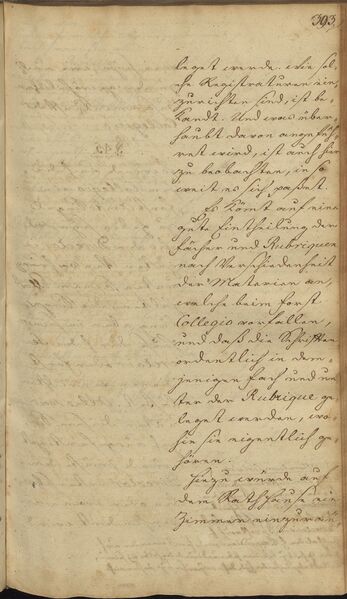 393.
leget werde. Wie sol-
che Registraturen ein-
zurichten sind, ist be-
kandt. Und was über-
haubt davon angefüh-
ret wird, ist auch hier
zu beobachten, in so
weit es sich paßet.
Es kömt auf eine
gute Eintheilung der
Fächer und Rubriquen
nach Verschiedenheit
der Materien an,
welche beim Forst
Collegio vorfallen,
und daß die Schriften
ordentlich in dem-
jenigen Fach und un-
ter der Rubrique ge-
leget werden, wo-
hin sie eigentlich ge-
hören.
Hiezu würde auf
dem Rathhause ein
Zimmer einzuräu-